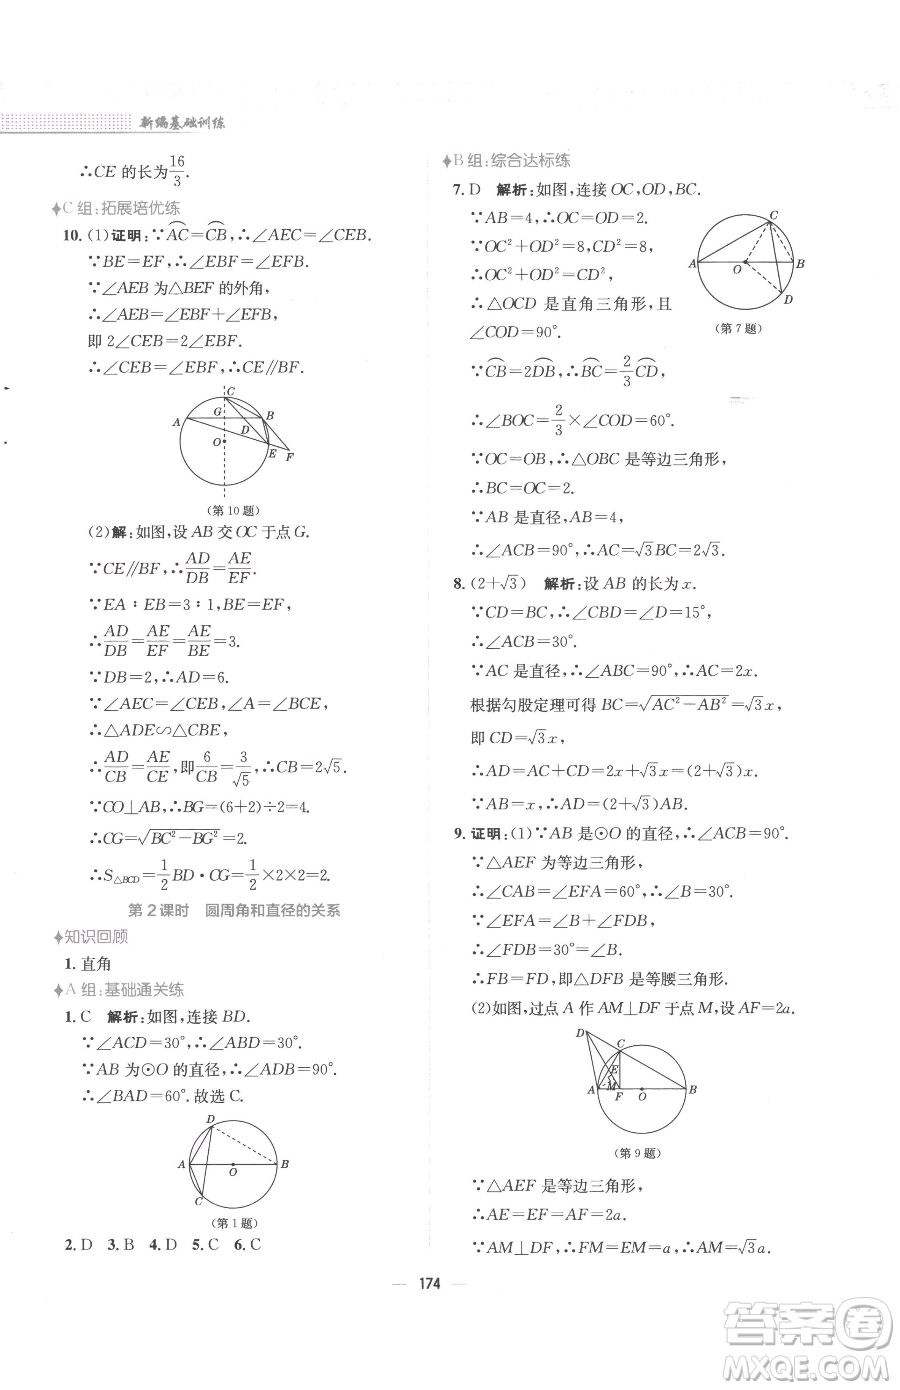 新编基础训练
∴CE 的长为16/3.
C 组:拓展培优练
10. (1)证明:∵⌒AC=⌒CB,∴∠AEC=∠CEB.
∵BE=EF,∴∠EBF=∠EFB.
∵∠AEB 为△BEF 的外角,
∴∠AEB=∠EBF+∠EFB,
即 2∠CEB=2∠EBF.
∴∠CEB=∠EBF,∴CE∥BF.
C
A
G
B
D
O
E
F
(第 10 题)
(2)解:如图,设 AB 交 OC 于点 G.
∵CE∥BF,∴AD/DB=AE/EF.
∵EA∶EB=3∶1,BE=EF,
∴AD/DB=AE/EF=AE/BE=3.
∵DB=2,∴AD=6.
∵∠AEC=∠CEB,∠A=∠BCE,
∴△ADE∽△CBE,
∴AD/CB=AE/CE,即6/CB=3/√5,∴CB=2√5.
∵CO⊥AB,∴BG=(6+2)÷2=4.
∴CG=√(BC²-BG²)=2.
∴S△BCD=1/2BD·CG=1/2×2×2=2.
第 2 课时 圆周角和直径的关系
知识回顾
1. 直角
A 组:基础通关练
1. C 解析:如图,连接 BD.
∵∠ACD=30°,∴∠ABD=30°.
∵AB 为⊙O 的直径,∴∠ADB=90°.
∴∠BAD=60°.故选 C.
D
A
O
B
C
(第 1 题)
2. D 3. B 4. D 5. C 6. C
B 组:综合达标练
7. D 解析:如图,连接 OC,OD,BC.
∵AB=4,∴OC=OD=2.
∵OC²+OD²=8,CD²=8,
∴OC²+OD²=CD²,
∴△OCD 是直角三角形,且
∠COD=90°.
C
A
O
B
D
(第 7 题)
∵⌒CB=2⌒DB,∴⌒BC=2/3⌒CD,
∴∠BOC=2/3×∠COD=60°.
∵OC=OB,∴△OBC 是等边三角形,
∴BC=OC=2.
∵AB 是直径,AB=4,
∴∠ACB=90°,∴AC=√3BC=2√3.
8. (2+√3) 解析:设 AB 的长为 x.
∵CD=BC,∴∠CBD=∠D=15°,
∴∠ACB=30°.
∵AC 是直径,∴∠ABC=90°,∴AC=2x.
根据勾股定理可得 BC=√(AC²-AB²)=√3x,
即 CD=√3x,
∴AD=AC+CD=2x+√3x=(2+√3)x.
∵AB=x,∴AD=(2+√3)AB.
9. 证明:(1)∵AB 是⊙O 的直径,∴∠ACB=90°.
∵△AEF 为等边三角形,
∴∠CAB=∠EFA=60°,∴∠B=30°.
∵∠EFA=∠B+∠FDB,
∴∠FDB=30°=∠B,
∴FB=FD,即△DFB 是等腰三角形.
(2)如图,过点 A 作 AM⊥DF 于点 M,设 AF=2a.
D
C
E
A
M
F
O
B
(第 9 题)
∵△AEF 是等边三角形,
∴AE=EF=AF=2a.
∵AM⊥DF,∴FM=EM=a,∴AM=√3a.
174
答案圈
MXQE.COM